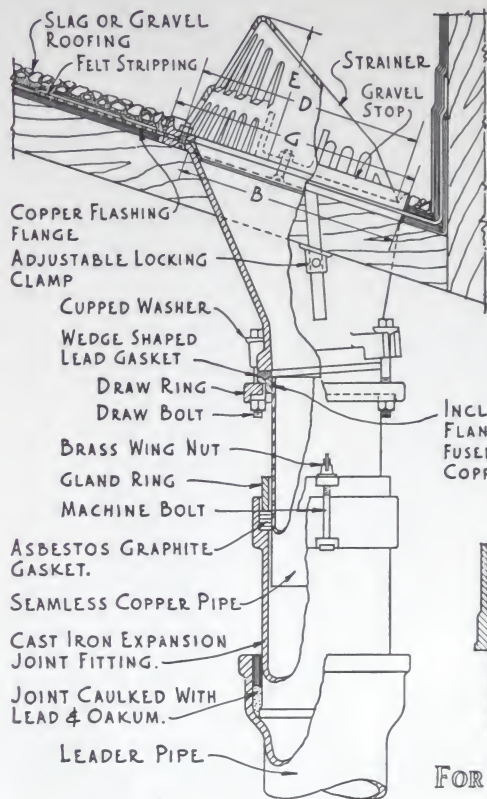 SLAG OR GRAVEL
ROOFING
FELT STRIPPING
E
D
G
B
STRAINER
GRAVEL
STOP
COPPER FLASHING
FLANGE
ADJUSTABLE LOCKING
CLAMP
CUPPED WASHER
WEDGE SHAPED
LEAD GASKET
DRAW RING
DRAW BOLT
INCL
FLAN
FUSE
COPP
BRASS WING NUT
GLAND RING
MACHINE BOLT
ASBESTOS GRAPHITE
GASKET.
SEAMLESS COPPER PIPE
CAST IRON EXPANSION
JOINT FITTING.
JOINT CAULKED WITH
LEAD & OAKUM.
LEADER PIPE
FOR